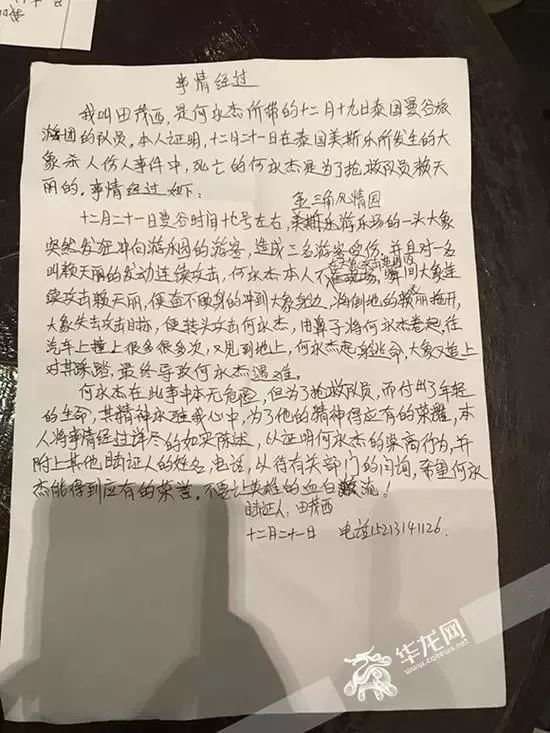 事情经过
我叫田茂西，是何永杰所带的十二月十九日泰国曼谷旅
游团的队员。本人证明，十二月二十一日在泰国美斯乐所发生的大
象杀人伤人事件中，死亡的何永杰是为了抢救队员赖天
丽的。事情经过如下：
金三角风情园
十二月二十一日曼谷时间十七号左右，美斯乐游乐场的一头大象
突然发狂冲向游乐园的游客，造成三名游客受伤，并且对一名
叫赖天丽的发动连续攻击，何永杰本人不在 瞬间大象连
续攻击赖天丽，便奋不顾身的冲到大象身边，将倒地的赖丽拖开，
大象失去攻击目标，便转头攻击何永杰，用鼻子将何永杰卷起，往
汽车上撞上很多很多次，又甩到地上，何永杰起身逃命，大象又追上
对其踩踏，最终导致何永杰遇难。
何永杰在此事中本无危险，但为了抢救队员，而付出了年轻
的生命，其精神永驻我心中，为了他的精神得应有的荣耀，本
人将事情经过详尽的如实陈述，以证明何永杰的崇高行为，并
附上其他见证人的姓名，电话，以待有关部门的问询，希望何永
杰能得到应有的荣誉。不要让英雄的血白流！
见证人：田茂西
十二月二十一日 电话15213141126.
华龙网
www.cqnews.net